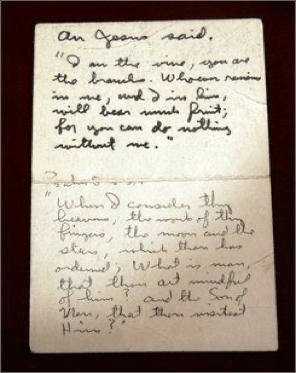 An Jesus said.
"I am the vine, you are
the branch. Whoever remains
in me, and I in him,
will bear much fruit;
for you can do nothing
without me."
"When I consider thy
heavens, the work of thy
fingers, the moon and the
stars, which thou has
ordained; What is man,
that thou art mindful
of him? and the Son of
Man, that thou visitest
Him?"